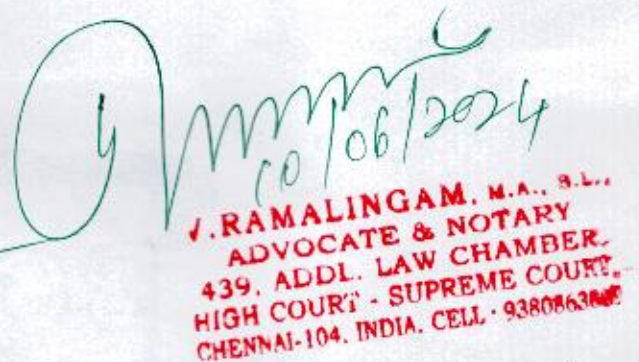 10/06/2024
J.RAMALINGAM, M.A., B.L.,
ADVOCATE & NOTARY
439, ADDL. LAW CHAMBER,
HIGH COURT - SUPREME COURT,
CHENNAI-104. INDIA. CELL :